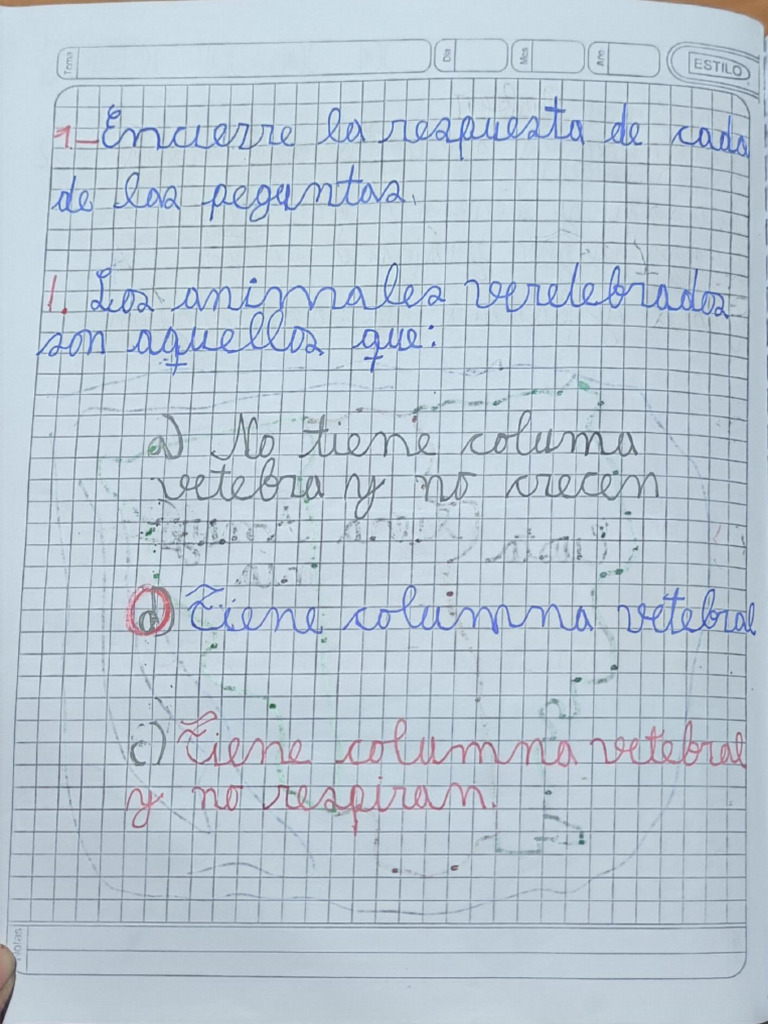 Tema
Dia
Mes
Año
ESTILO
1.- Encierre la respuesta de cada
de las peguntas.
1. Los animales veretebrados
son aquellos que:
a) No tiene columa
vetebra y no crecen
d) Tiene columna vetebral
c) Tiene columna vetebral
y no respiran.
Notas